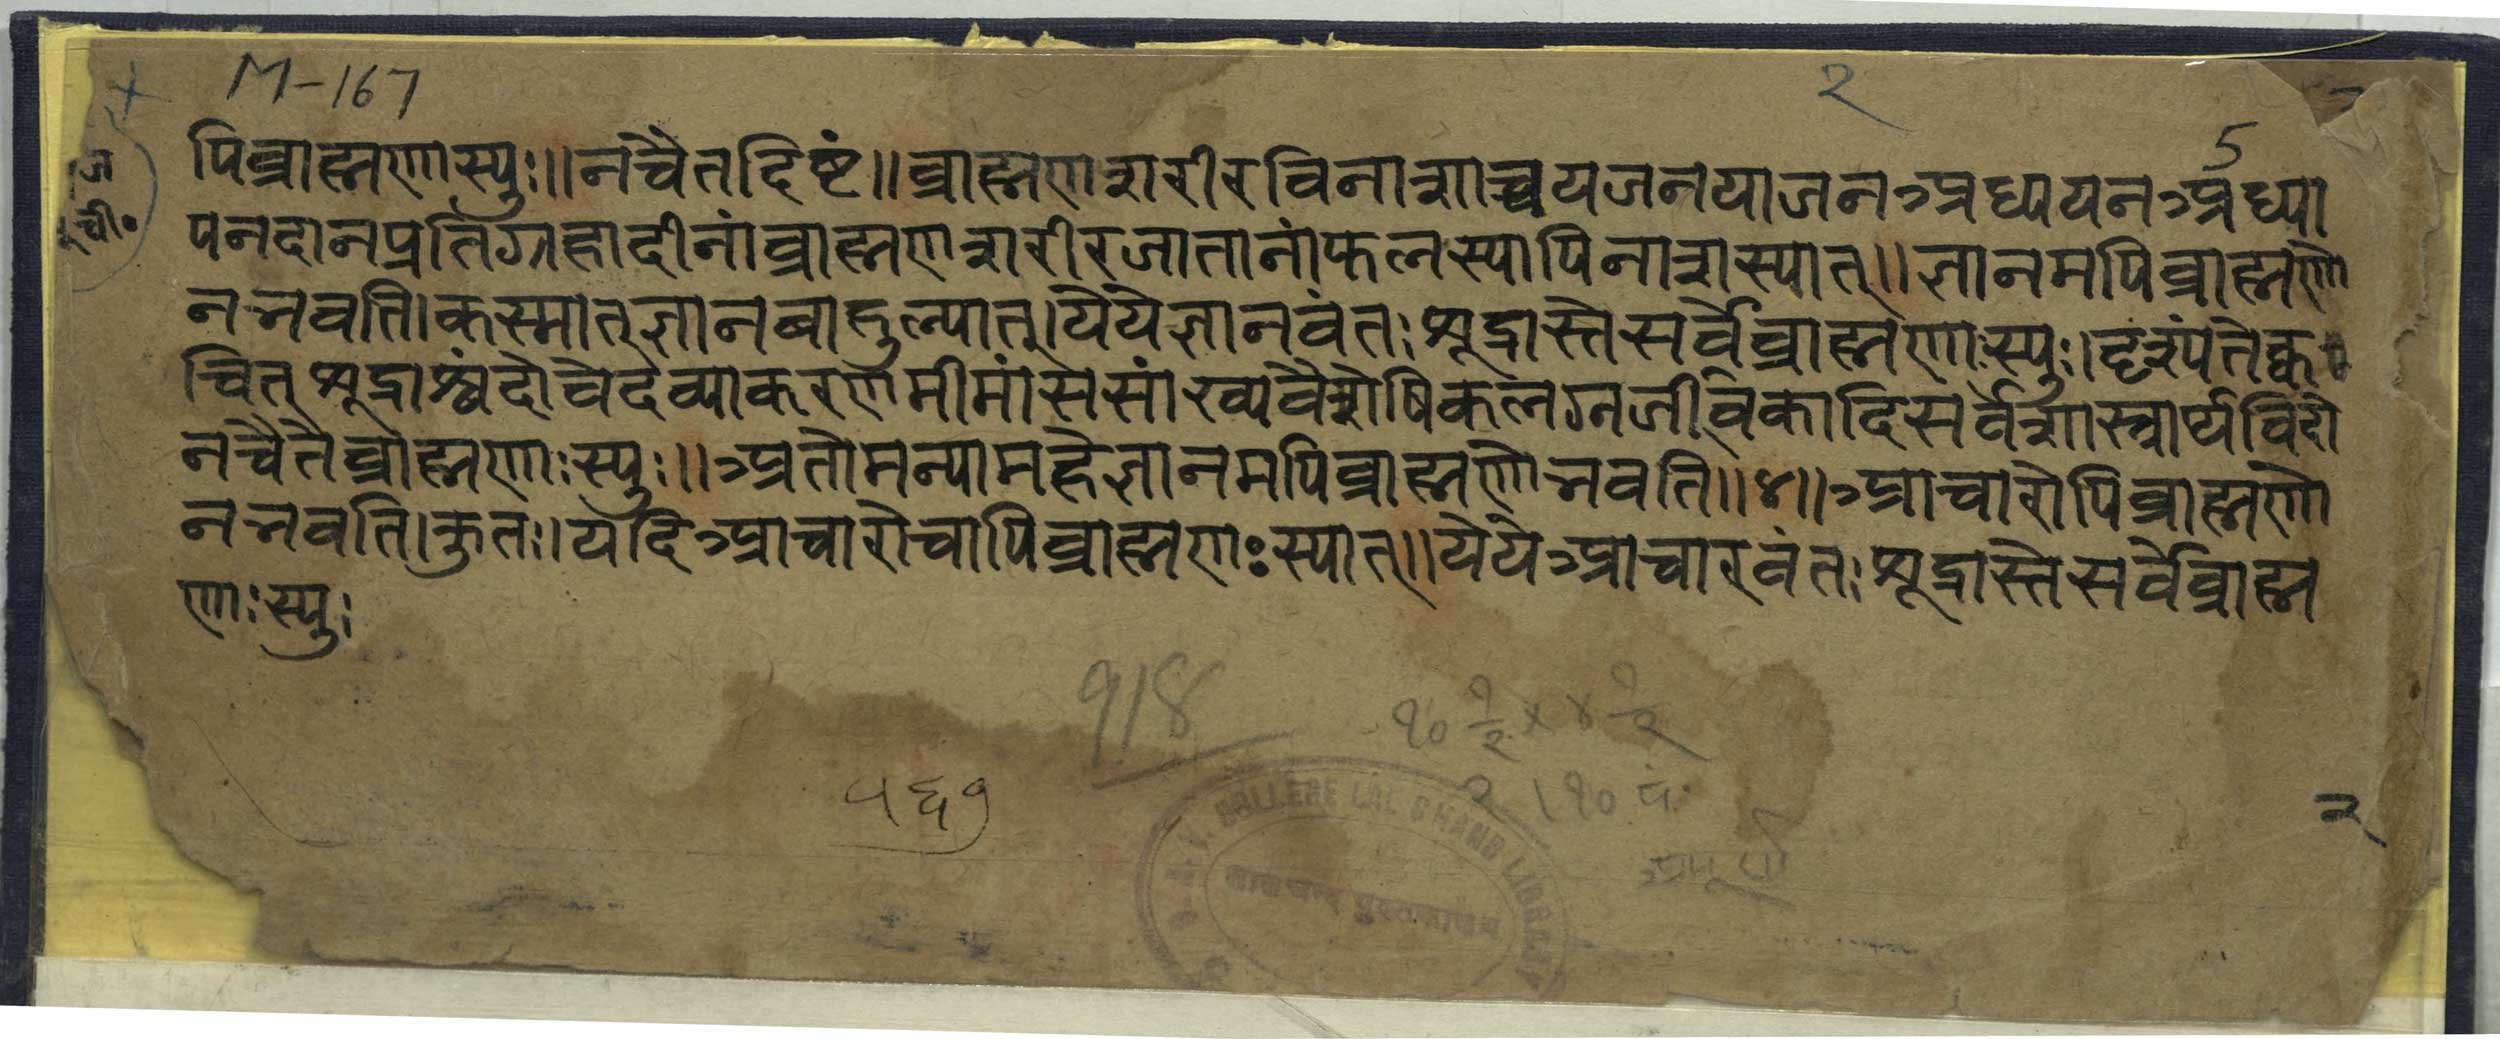 M-167
२
5
पिब्राह्मणास्युः॥नचैतदिष्टं॥ब्राह्मणशरीरविनाशाच्चयजनयाजनअध्ययनअध्या
पनदानप्रतिग्रहादीनांब्राह्मणशरीरजातानांफलस्यापिनाशस्यात्॥ज्ञानमपिब्राह्मणो
नभवति।कस्मात्ज्ञानबाहुल्यात्।येयेज्ञानवंतःशूद्रास्तेसर्वेब्राह्मणाःस्युः।दृश्यंतेक्व
चित्शूद्राश्छंदोवेदव्याकरणमीमांससांख्यवैशेषिकलग्नजीविकादिसर्वशास्त्रार्थविदो
नचैतेब्राह्मणाःस्युः॥अतोमन्यामहेज्ञानमपिब्राह्मणोनभवति॥४॥आचारोपिब्राह्मणो
नभवति।कुतः।यदिआचारोचापिब्राह्मणःस्यात्॥येयेआचारवंतःशूद्रास्तेसर्वेब्राह्म
णाःस्युः
918
१० १/२ x ४ १/२
२।१० पं.
५६१
अपूर्ण
D.A.V. COLLEGE LAL CHAND LIBRARY
लालचन्द पुस्तकालय
२